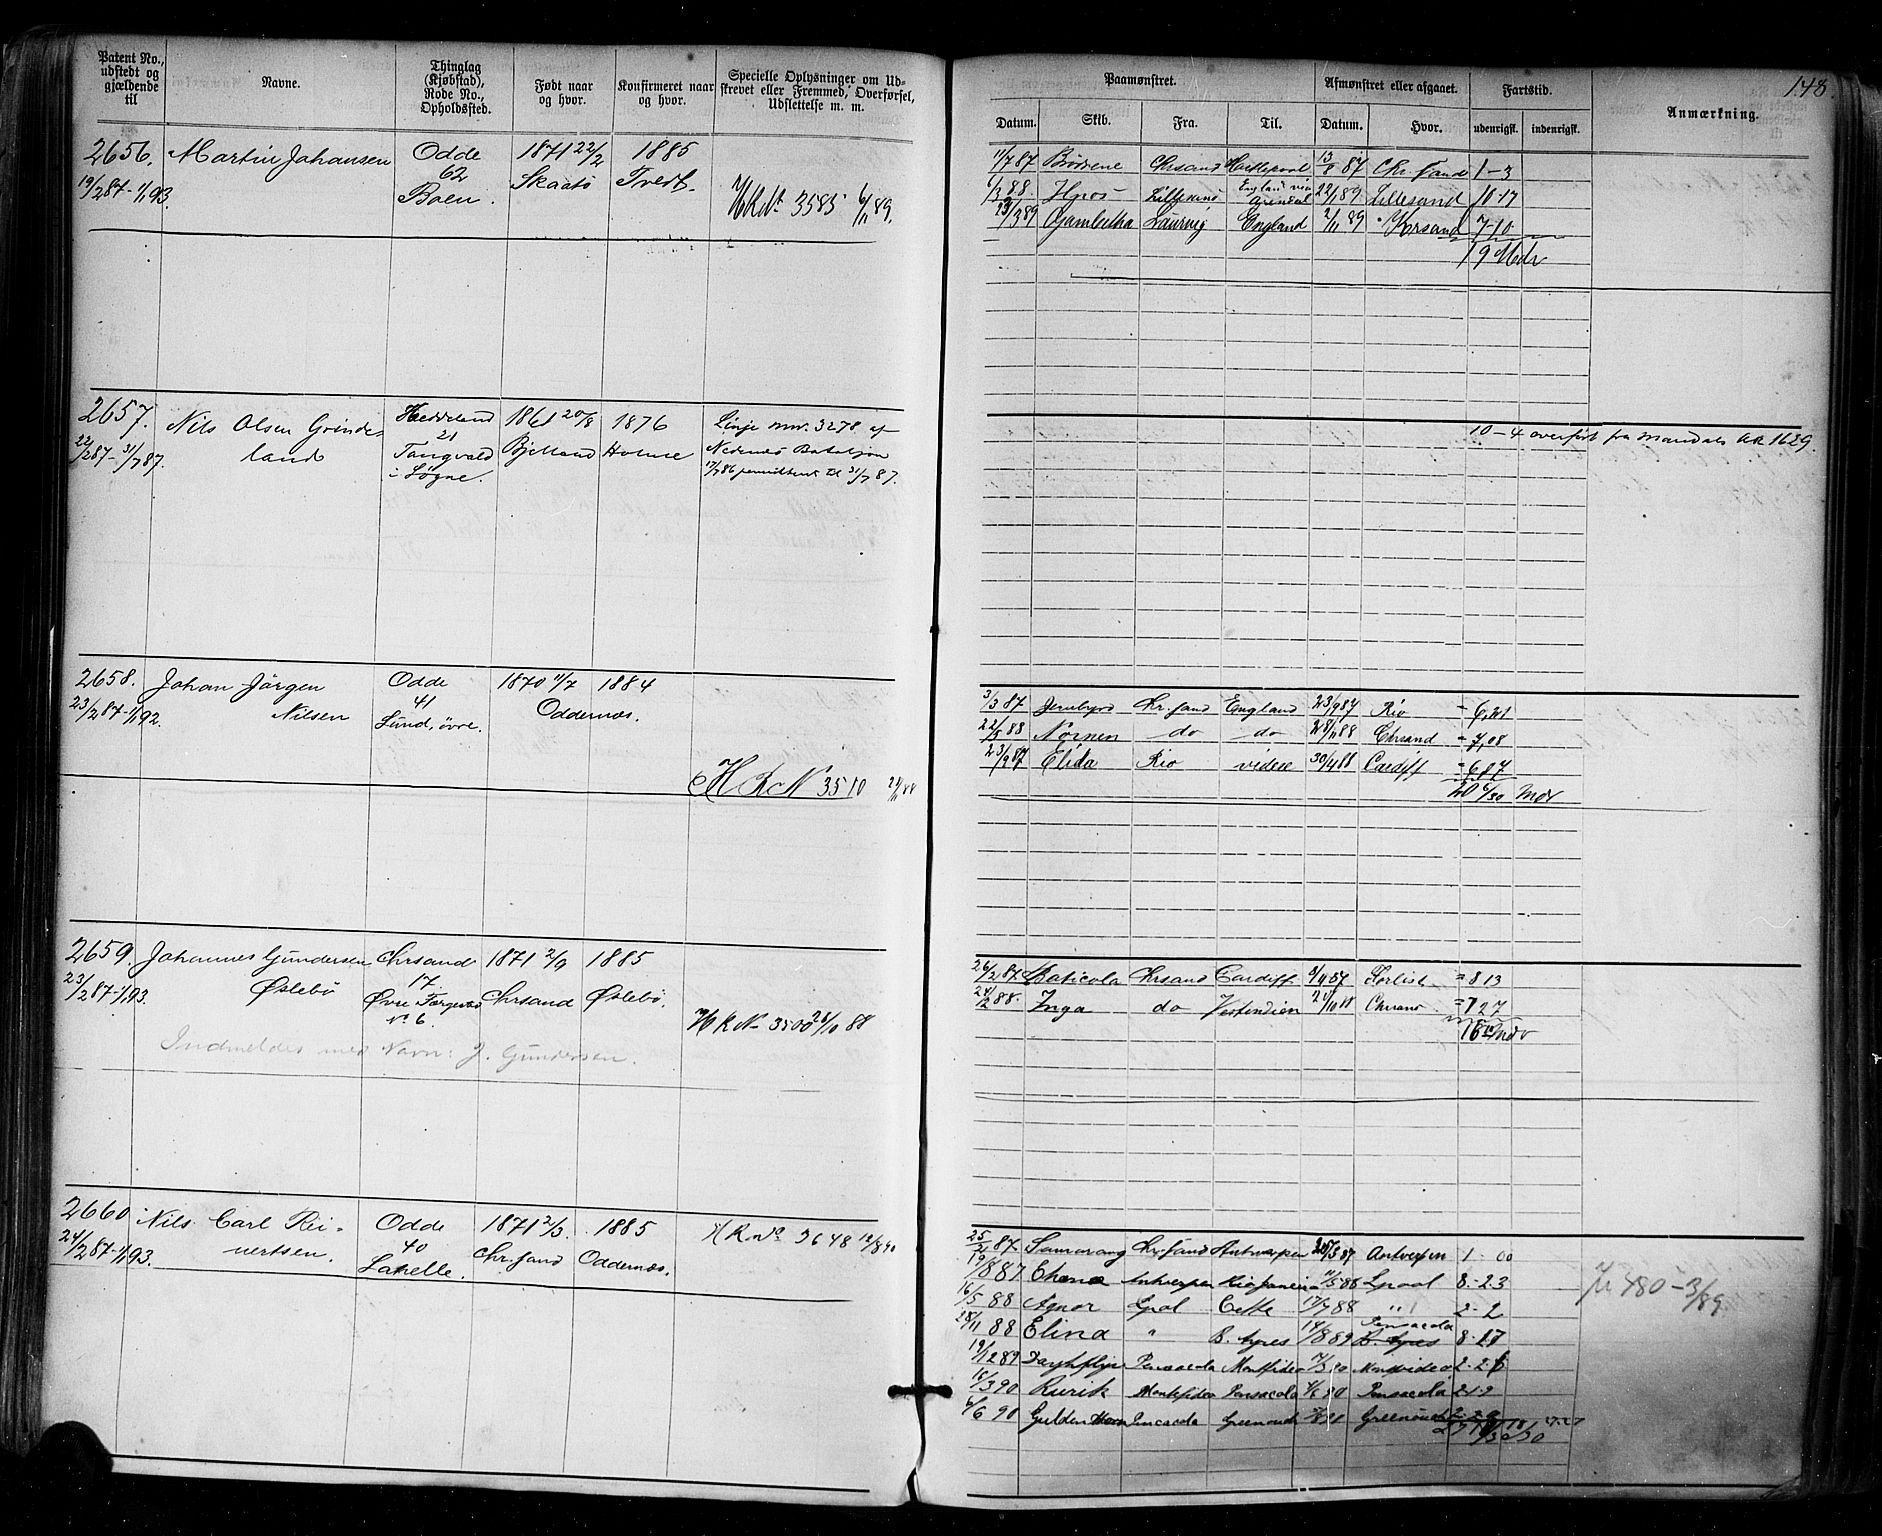 148.
Patent No., udstedt og gjældende til
Navne.
Thinglag (Kjøbstad), Rode No., Opholdssted.
Født naar og hvor.
Konfirmeret naar og hvor.
Specielle Oplysninger om Udskrevet eller Fremmed, Overførsel, Udslettelse m. m.
Paamønstret.
Afmønstret eller afgaaet.
Fartstid.
Anmærkning.
Datum. Skib. Fra. Til. Datum. Hvor. udenrigsk. indenrigsk.
2656. Martin Johansen Odde 1871 22/2 1885
19/2 87 - 1/1 93. 62 Skaatø Tvedt.
Boen. HRNr 3585 6/11 89.
11/7 87 Brødrene Chrsand Hartlepool 13/8 87 Chr.sand 1-3
6/3 88 Lillesand England via Arendal 22/1 89 Lillesand 10-17
23/3 89 Gambetta Laurvig England 2/11 89 Krsand 7-10
19 Mdr
2657. Nils Olsen Grinde- Heddeland 1861 20/8 1876 Linje nr. 3278 af
22/2 87 - 31/7 87. land 21 Bjelland Holme Nedenes Bataljon
Tangvald 17/7 86 permitteret til 31/7 87.
i Søgne.
10-4 overført fra Mandals AR 1629.
2658. Johan Jörgen Odde 1870 11/7 1884
23/2 87 - 1/1 92. Nilsen 41 Oddernæs.
Lund, övre.
HRN 3510 29/11 88
3/3 87 Chr.sand England 23/9 87 Rio = 6,21
22/5 88 Nornen do do 28/11 88 Chrsand = 7,08
23/9 87 Elida Rio videre 30/4 88 Cardiff = 6 87
20 6/30 Mdr
2659. Johannes Gundersen Chrsand 1871 2/9 1885
23/2 87 - 1/1 93. Øslebö 17 Chrsand Øslebö.
Øvre
No 6. HRN 3500 26/10 88
Indmeldes med Navn: J. Gundersen.
26/2 87 Chrsand Cardiff 9/11 87 = 8 13
24/2 88. Inga do Vestindien 21/10 88 Chrsand = 7 27
Mdr
2660 Nils Carl Rei- Odde 1871 2/3 1885 HRNo 3648 12/8 90
24/2 87 - 1/1 93. nertsen. 40 Chr.sand Oddernæs.
Lahelle.
25/2 87 Samarang Chr.sand Antwerpen 87 Antverpen 1-00
19/8 87 Antverpen Rio Janeiro 11/5 88 Lpool 8-23
16/5 88 Agnor Lpol Cette 17/7 88 " 2-2
28/11 88 Elina " B. Ayres 14/8 89 B. Ayres Pensacola 8-17
19/12 89 Pensacola Montevideo 90 Montevideo 2-2
15/3 90 Rurik Montevideo Pensacola 90 Pensacola 2-1-9
6/6 90 Gulden Pensacola Greenock Greenock 2-2-9
27-27
480 - 3/89